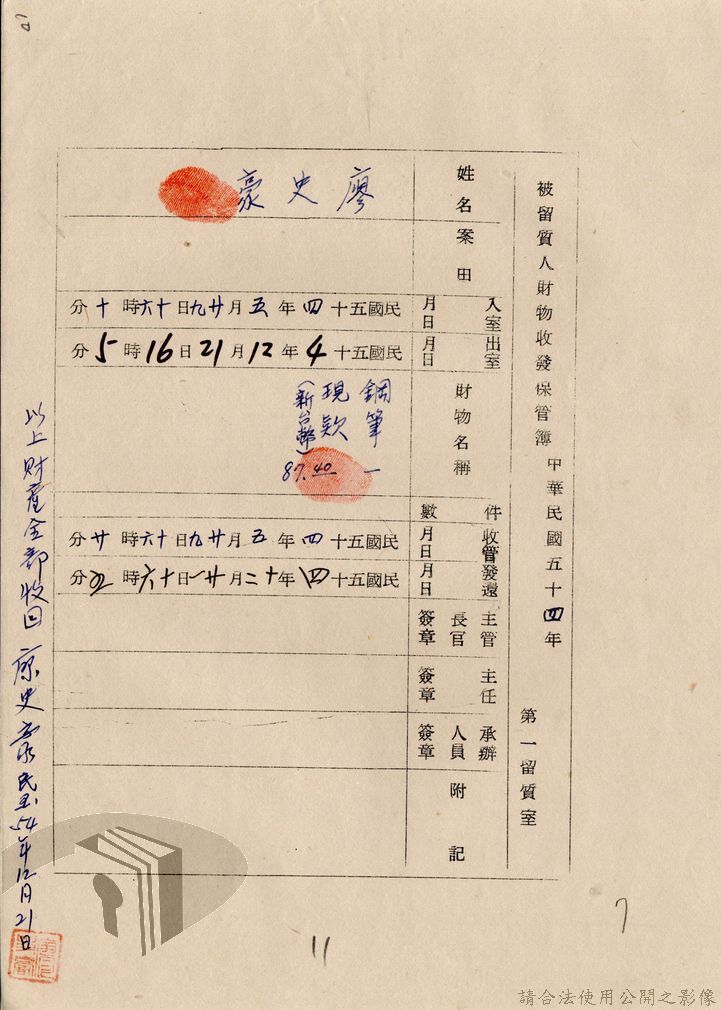 被留質人財物收發保管簿 中華民國五十四年 第一留質室
姓名 廖史豪
案由
入室月日 民國五十四年五月廿九日十六時十分
出室月日 民國五十4年12月21日16時5分
財物名稱 鋼筆 一
現款
(新台幣) 87.40
件數
收管月日 民國五十四年五月廿九日十六時廿分
發還月日 民國五十四年十二月廿一日十六時五分
主管長官簽章
主任簽章
承辦人員簽章
附記
以上財產全部收回 廖史豪 民國54年12月21日
11
7
請合法使用公開之影像